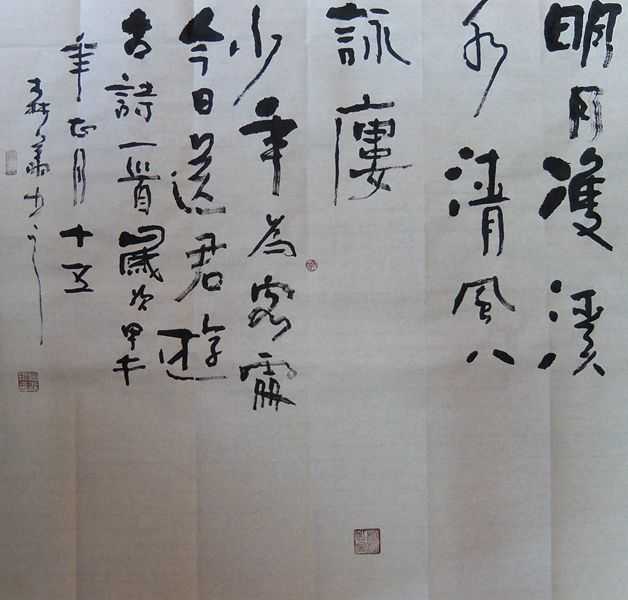 明月雙溪
水清風八
詠廔
少年為客處
今日送君遊
古詩一首歲次甲午
年正月十五